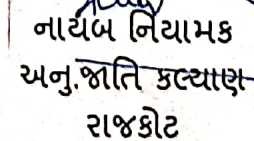 નાયબ નિયામક
અનુ.જાતિ કલ્યાણ
રાજકોટ